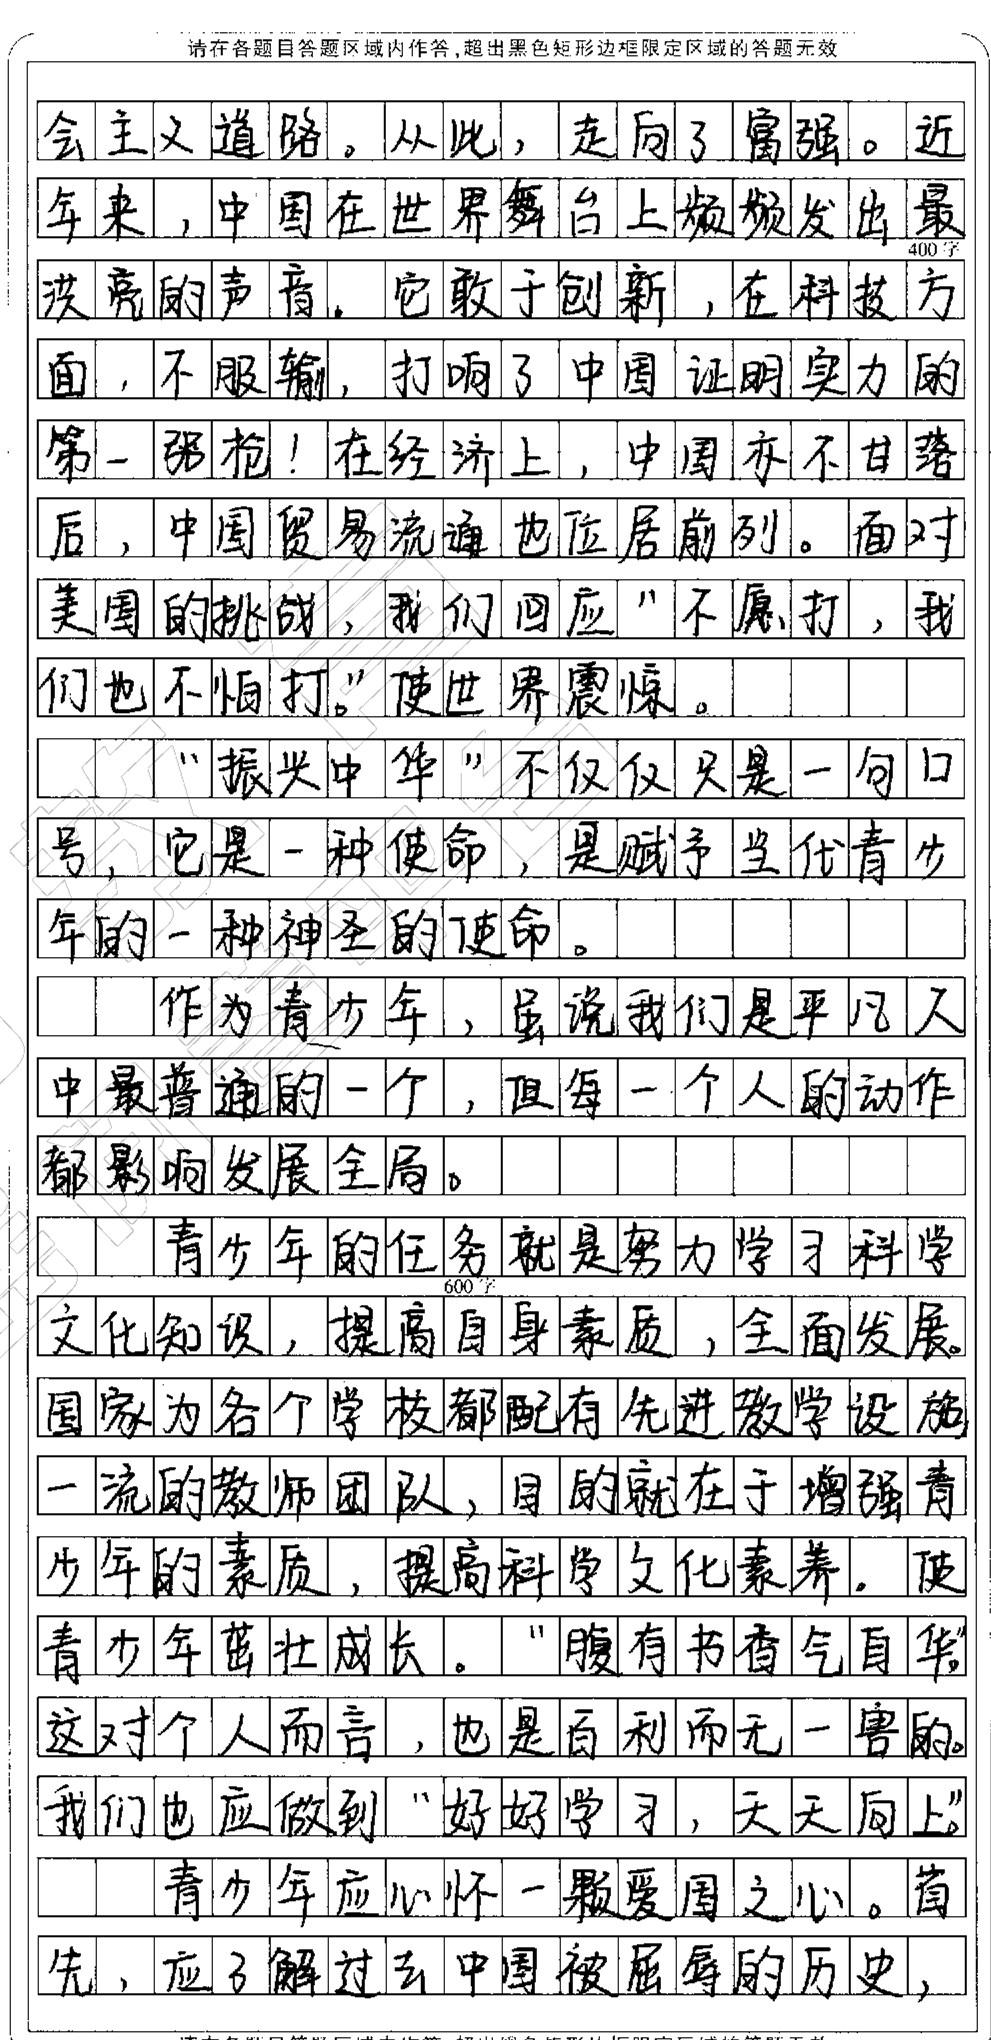 请在各题目答题区域内作答,超出黑色矩形边框限定区域的答题无效
会主义道路。从此，走向了富强。近
年来，中国在世界舞台上频频发出最
400字
洪亮的声音。它敢于创新，在科技方
面，不服输，打响了中国证明实力的
第一强枪！在经济上，中国亦不甘落
后，中国贸易流通也位居前列。面对
美国的挑战，我们回应“不愿打，我
们也不怕打。”使世界震惊。
“振兴中华”不仅仅只是一句口
号，它是一种使命，是赋予当代青少
年的一种神圣的使命。
作为青少年，虽说我们是平凡人
中最普通的一个，但每一个人的动作
都影响发展全局。
青少年的任务就是努力学习科学
600字
文化知识，提高自身素质，全面发展。
国家为各个学校都配有先进教学设施
一流的教师团队，目的就在于增强青
少年的素质，提高科学文化素养。使
青少年茁壮成长。“腹有书香气自华。”
这对个人而言，也是百利而无一害的。
我们也应做到“好好学习，天天向上。”
青少年应心怀一颗爱国之心。首
先，应了解过去中国被屈辱的历史，